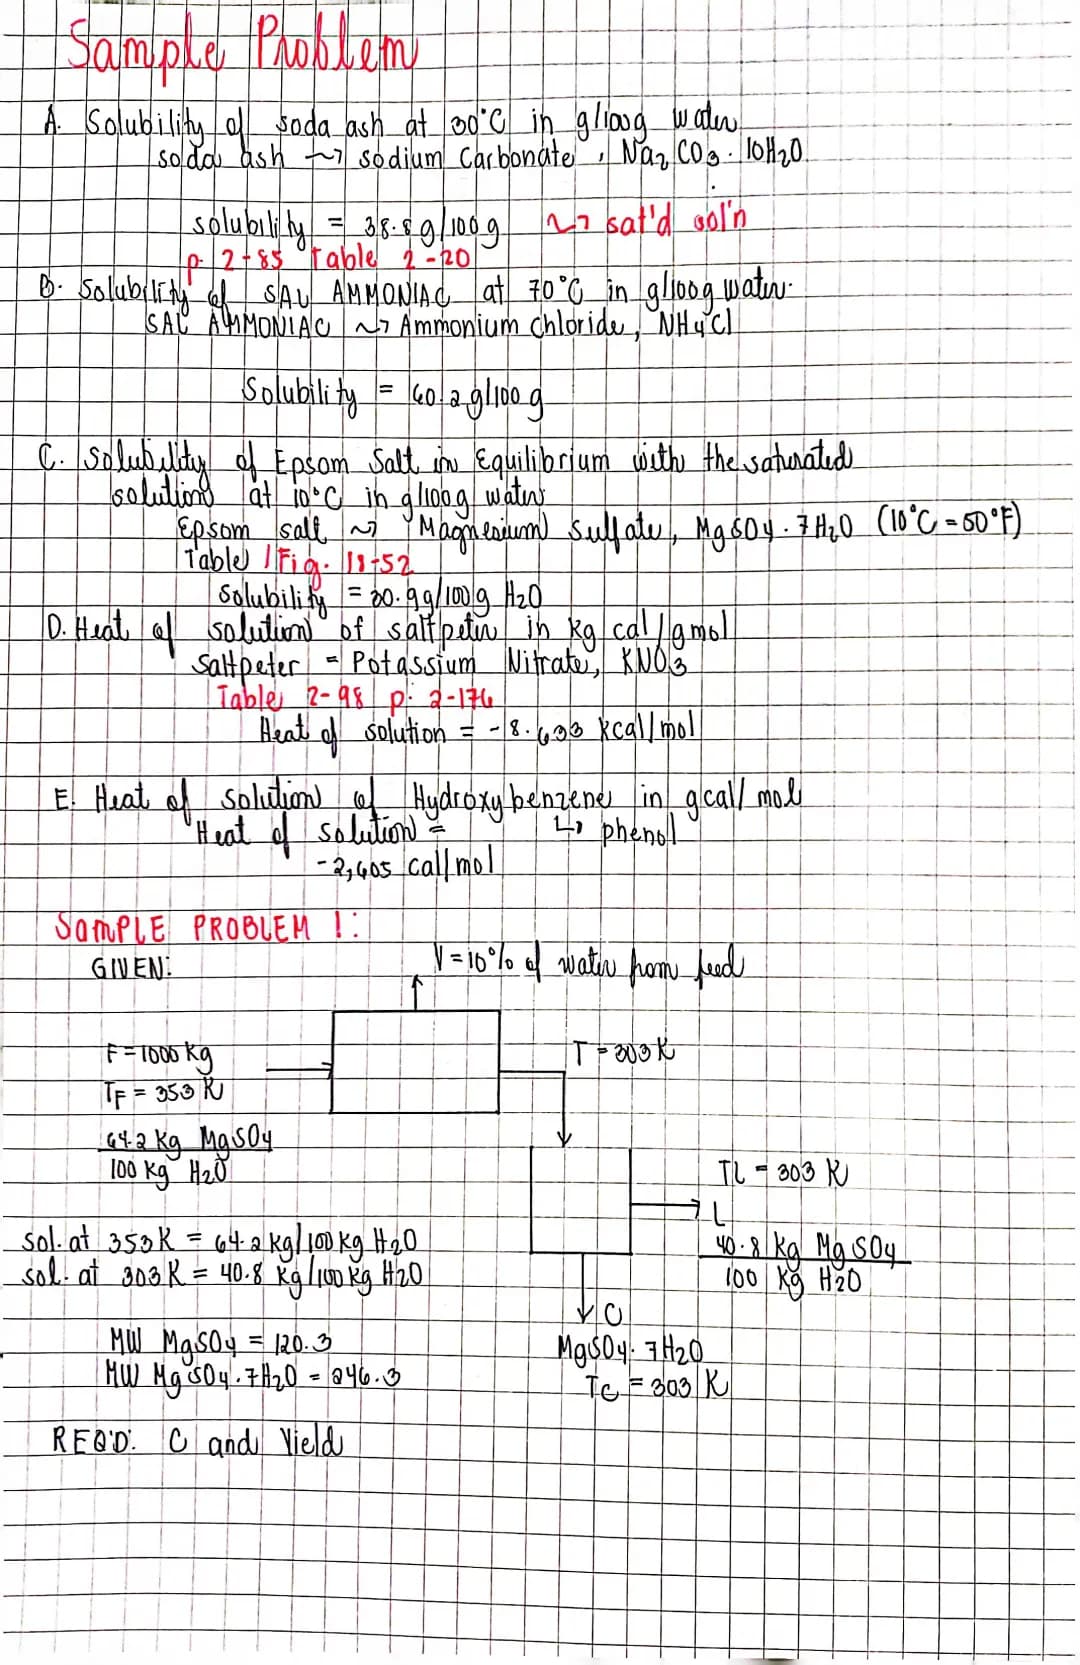 Sample Problem
A. Solubility of soda ash at 30°C in g/100g water
soda ash ~> sodium Carbonate, Na2CO3·10H2O
solubility = 38.8g/100g ~> sat'd sol'n
p. 2-85 Table 2-20
B. Solubility of SAL AMMONIAC at 70°C in g/100g water.
SAL AMMONIAC ~> Ammonium chloride, NH4Cl
Solubility = 60.2g/100g
C. Solubility of Epsom Salt in Equilibrium with the saturated
solution at 10°C in g/100g water
Epsom salt ~> Magnesium Sulfate, MgSO4·7H2O (10°C = 50°F)
Table / Fig. 18-52
Solubility = 30.9g/100g H2O
D. Heat of solution of saltpeter in kg cal/gmol
Saltpeter = Potassium Nitrate, KNO3
Table 2-98 p. 2-176
Heat of solution = -8.633 kcal/mol
E. Heat of solution of Hydroxybenzene in gcal/mol
Heat of solution = ↳ phenol
-2,605 cal/mol
SAMPLE PROBLEM 1:
GIVEN: V = 10% of water from feed
F = 1000 kg T = 303 K
TF = 353 K
64.2 kg MgSO4
100 kg H2O
TL = 303 K
L
sol. at 353K = 64.2 kg/100 kg H2O 40.8 kg MgSO4
sol. at 303K = 40.8 kg/100kg H2O 100 kg H2O
C
MW MgSO4 = 120.3 MgSO4·7H2O
MW MgSO4·7H2O = 246.3 TC = 303 K
REQ'D: C and Yield